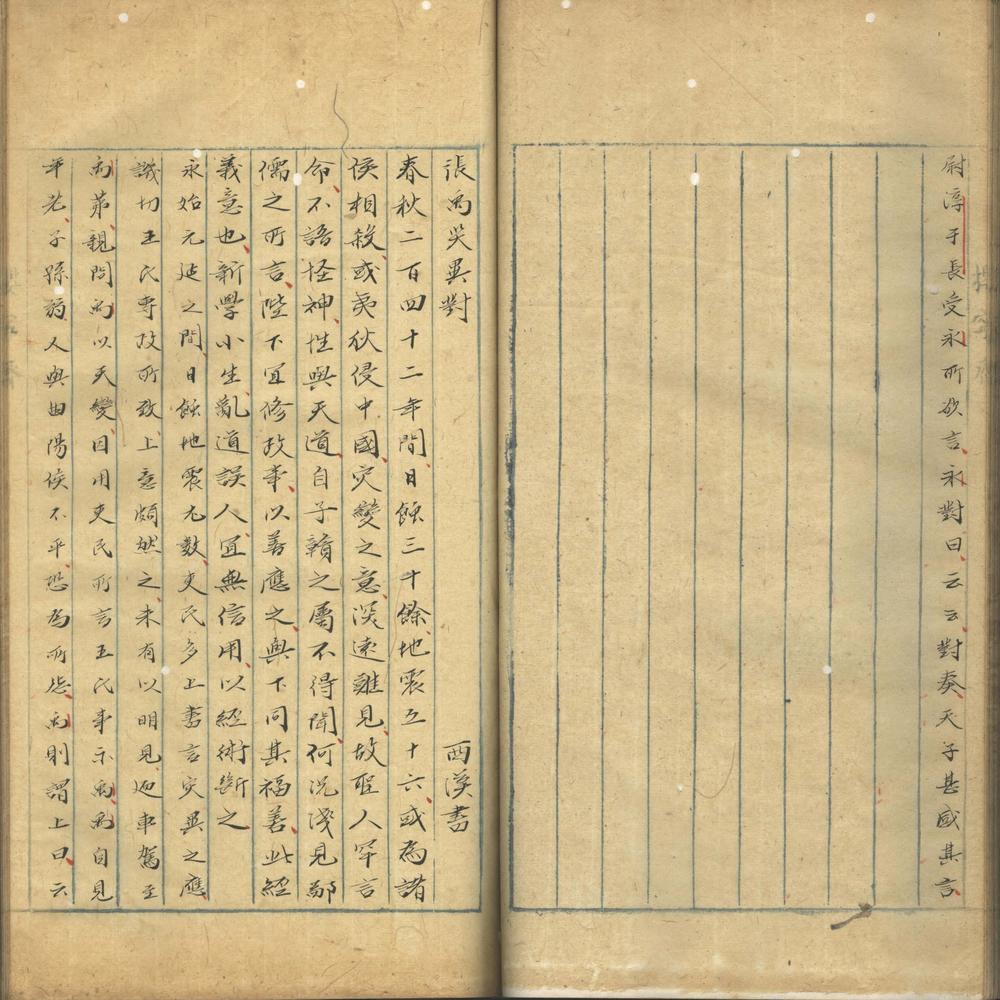 尉淳于長受永所欲言永對曰云云對奏天子甚感其言
張禹災異對 西漢書
春秋二百四十二年間日蝕三十餘地震五十六或為諸
侯相殺或夷狄侵中國災變之意深遠難見故聖人罕言
命不語怪神性與天道自子贛之屬不得聞何況淺見鄙
儒之所言陛下宜修政事以善應之與下同其福善此經
義意也新學小生亂道誤人宜無信用以經術斷之
永始元延之間日蝕地震尤數吏民多上書言災異之應
譏切王氏專政所致上意頗然之未有以明見迺車駕至
禹弟親問禹以天變因用吏民所言王氏事示禹禹自見
年老子孫弱又與曲陽侯不平恐為所怨禹則謂上曰云